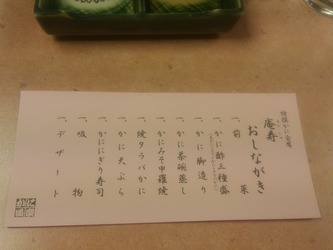 特撰かに会席
庵寿 おしながき
一、前菜
一、かに酢三種盛
一、かに脚造り
一、かに茶碗蒸し
一、かにみそ甲羅焼
一、焼タラバかに
一、かに天ぷら
一、かににぎり寿司
一、吸物
一、デザート